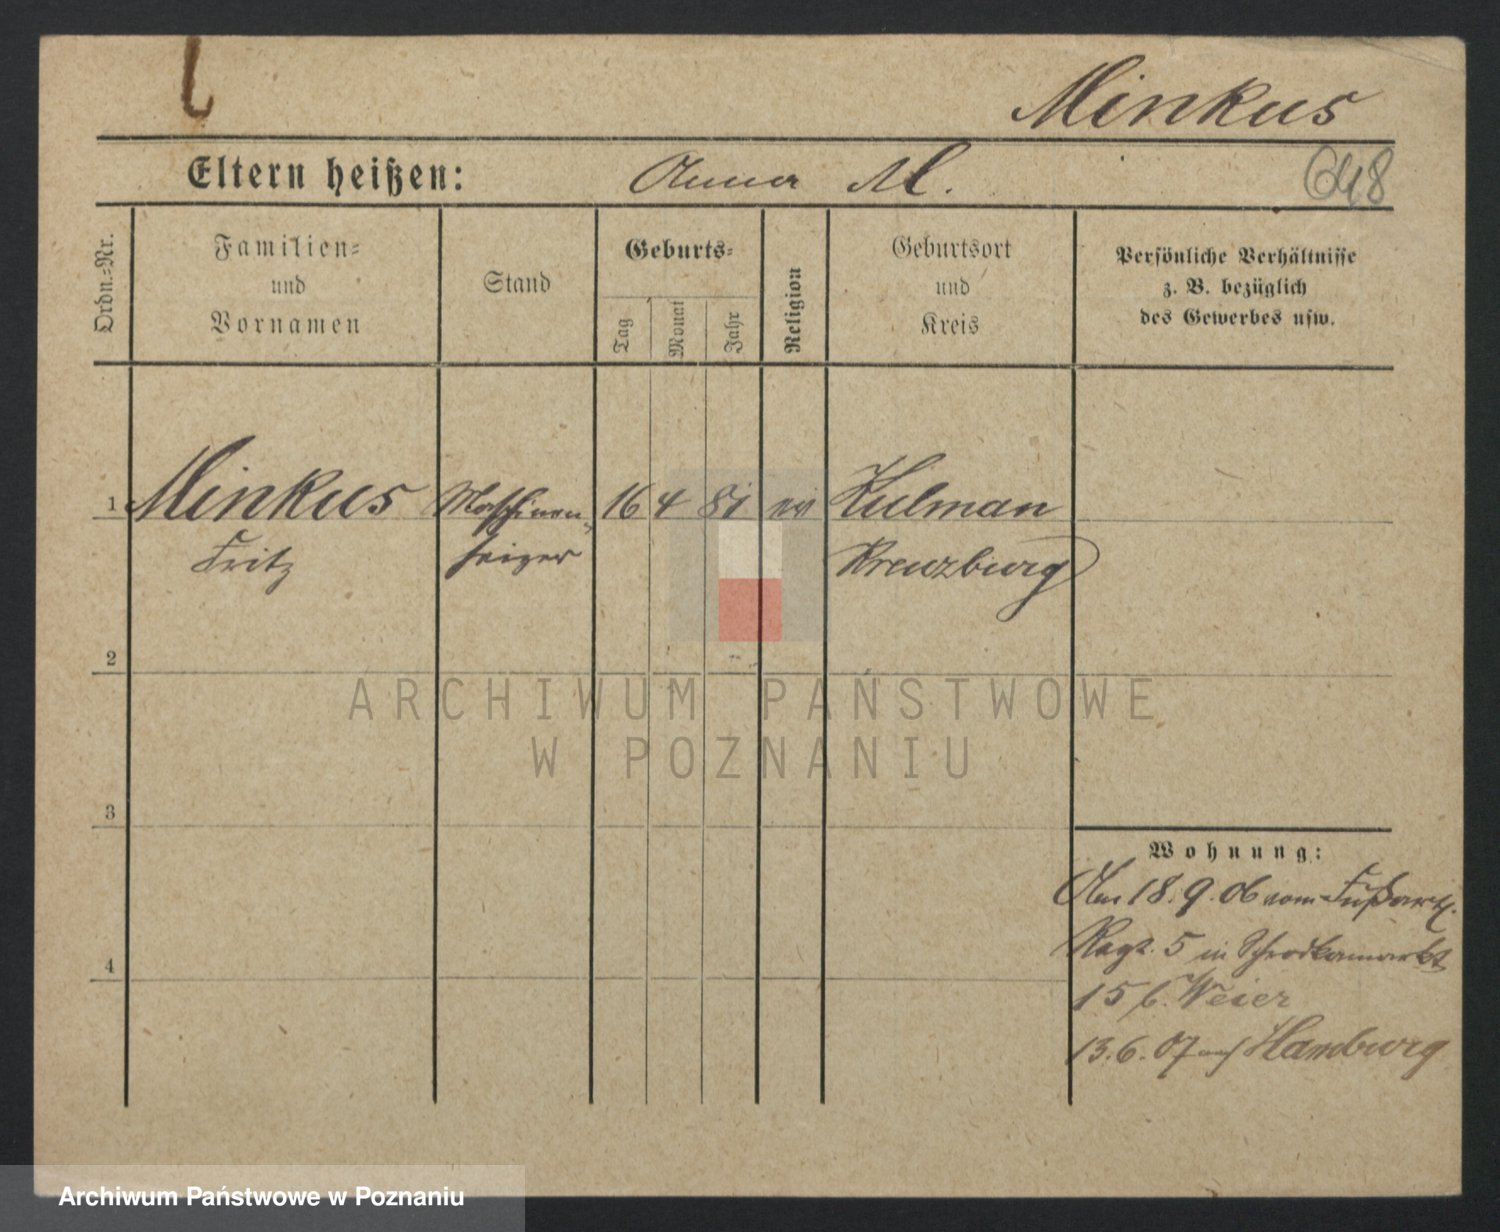 Minkus
Eltern heißen: Anna M.
648
Ordn.-Nr.
Familien-
und
Vornamen
Stand
Geburts-
Tag
Monat
Jahr
Religion
Geburtsort
und
Kreis
Persönliche Verhältnisse
z. B. bezüglich
des Gewerbes usw.
1 Minkus Maschinen- 16 4 81 ev Kulman
Fritz heizer Kreuzburg
2
3
4
ARCHIWUM PAŃSTWOWE
W POZNANIU
Wohnung:
Am 18.9.06 vom Fußart.
Regt. 5 in Schrodkamarkt
15 b. Weier
13.6.07 auf Hamburg
Archiwum Państwowe w Poznaniu